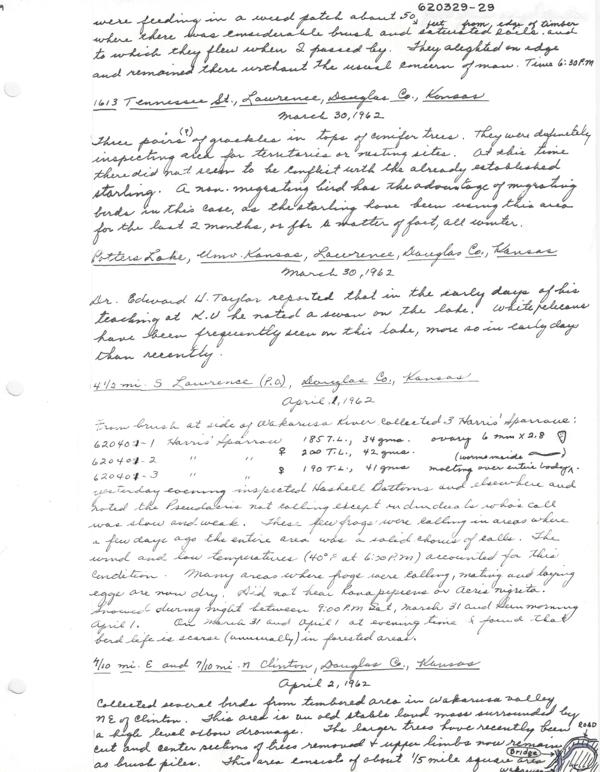 620329-29
were feeding in a weed patch about 50 feet from edge of timber
where there was considerable brush and saturated soils and
to which they flew when I passed by. They alighted on edge
and remained there without the usual concern of man. Time 6:30 P.M
1613 Tennessee St., Lawrence, Douglas Co., Kansas
March 30, 1962
Three pairs (?) of grackles in tops of conifer trees. They were definitely
inspecting area for territories or nesting sites. At this time
there did not seem to be conflict with the already established
starling. A non-migrating bird has the advantage of migrating
birds in this case, as the starling have been using this area
for the last 2 months, or for a matter of fact, all winter.
Potters Lake, Univ. Kansas, Lawrence, Douglas Co., Kansas
March 30, 1962
Dr. Edward H. Taylor reported that in the early days of his
teaching at K.U he noted a swan on the lake. White pelicans
have been frequently seen on this lake, more so in early day
than recently.
4 1/2 mi. S Lawrence (P.O), Douglas Co., Kansas
April 1, 1962
From brush at side of Wakarusa River collected 3 Harris' Sparrows:
620401-1 Harris' Sparrow 185 T.L., 34 gms. ovary 6 mm x 2.8
620401-2 " " ♀ 200 T.L., 42 gms. (worm inside)
620401-3 " " ♀ 190 T.L., 41 gms molting over entire body.
Yesterday evening inspected Haskell Bottoms and elsewhere and
noted the Pseudacris not calling except individuals who's call
was slow and weak. These few frogs were calling in areas where
a few days ago the entire area was a solid chorus of calls. The
wind and low temperatures (40°F at 6:30 P.M) accounted for this
condition. Many areas where frogs were calling, mating and laying
eggs are now dry. Did not hear Rana pipiens or Acris nigreta.
Snowed during night between 9:00 P.M Sat, March 31 and Sun morning
April 1. On March 31 and April 1 at evening time I found that
bird life is scarse (unusually) in forested areas.
4/10 mi. E and 7/10 mi. N Clinton, Douglas Co., Kansas
April 2, 1962
Collected several birds from timbered area in Wakarusa valley
NE of Clinton. This area is an old stable land mass surrounded by
a high level oxbow drainage. The larger trees have recently been
cut and center sections of trees removed & upper limbs now remain
as brush piles. This area consists of about 1/5 mile square area
ROAD
Bridge